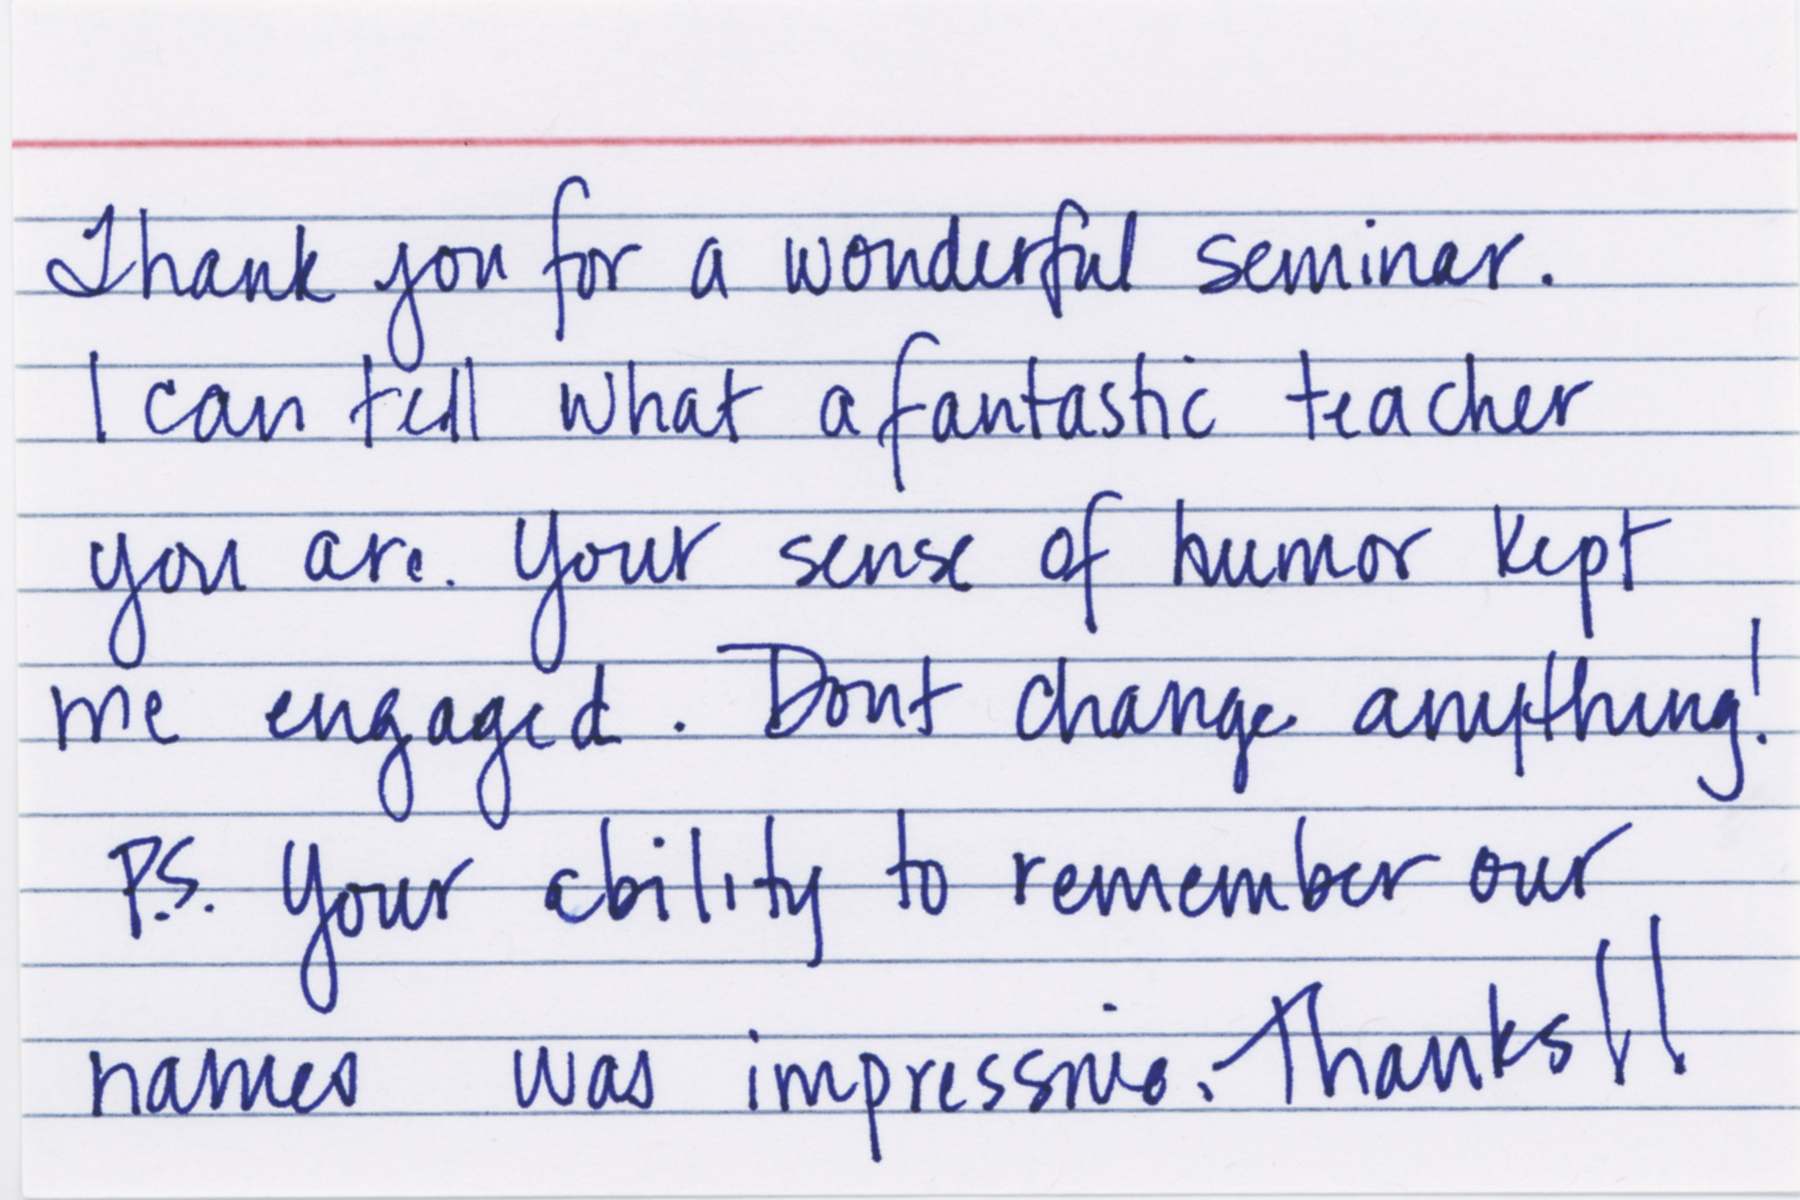 Thank you for a wonderful seminar.
I can tell what a fantastic teacher
you are. Your sense of humor kept
me engaged. Dont change anything!
P.S. Your ability to remember our
names was impressive. Thanks!!